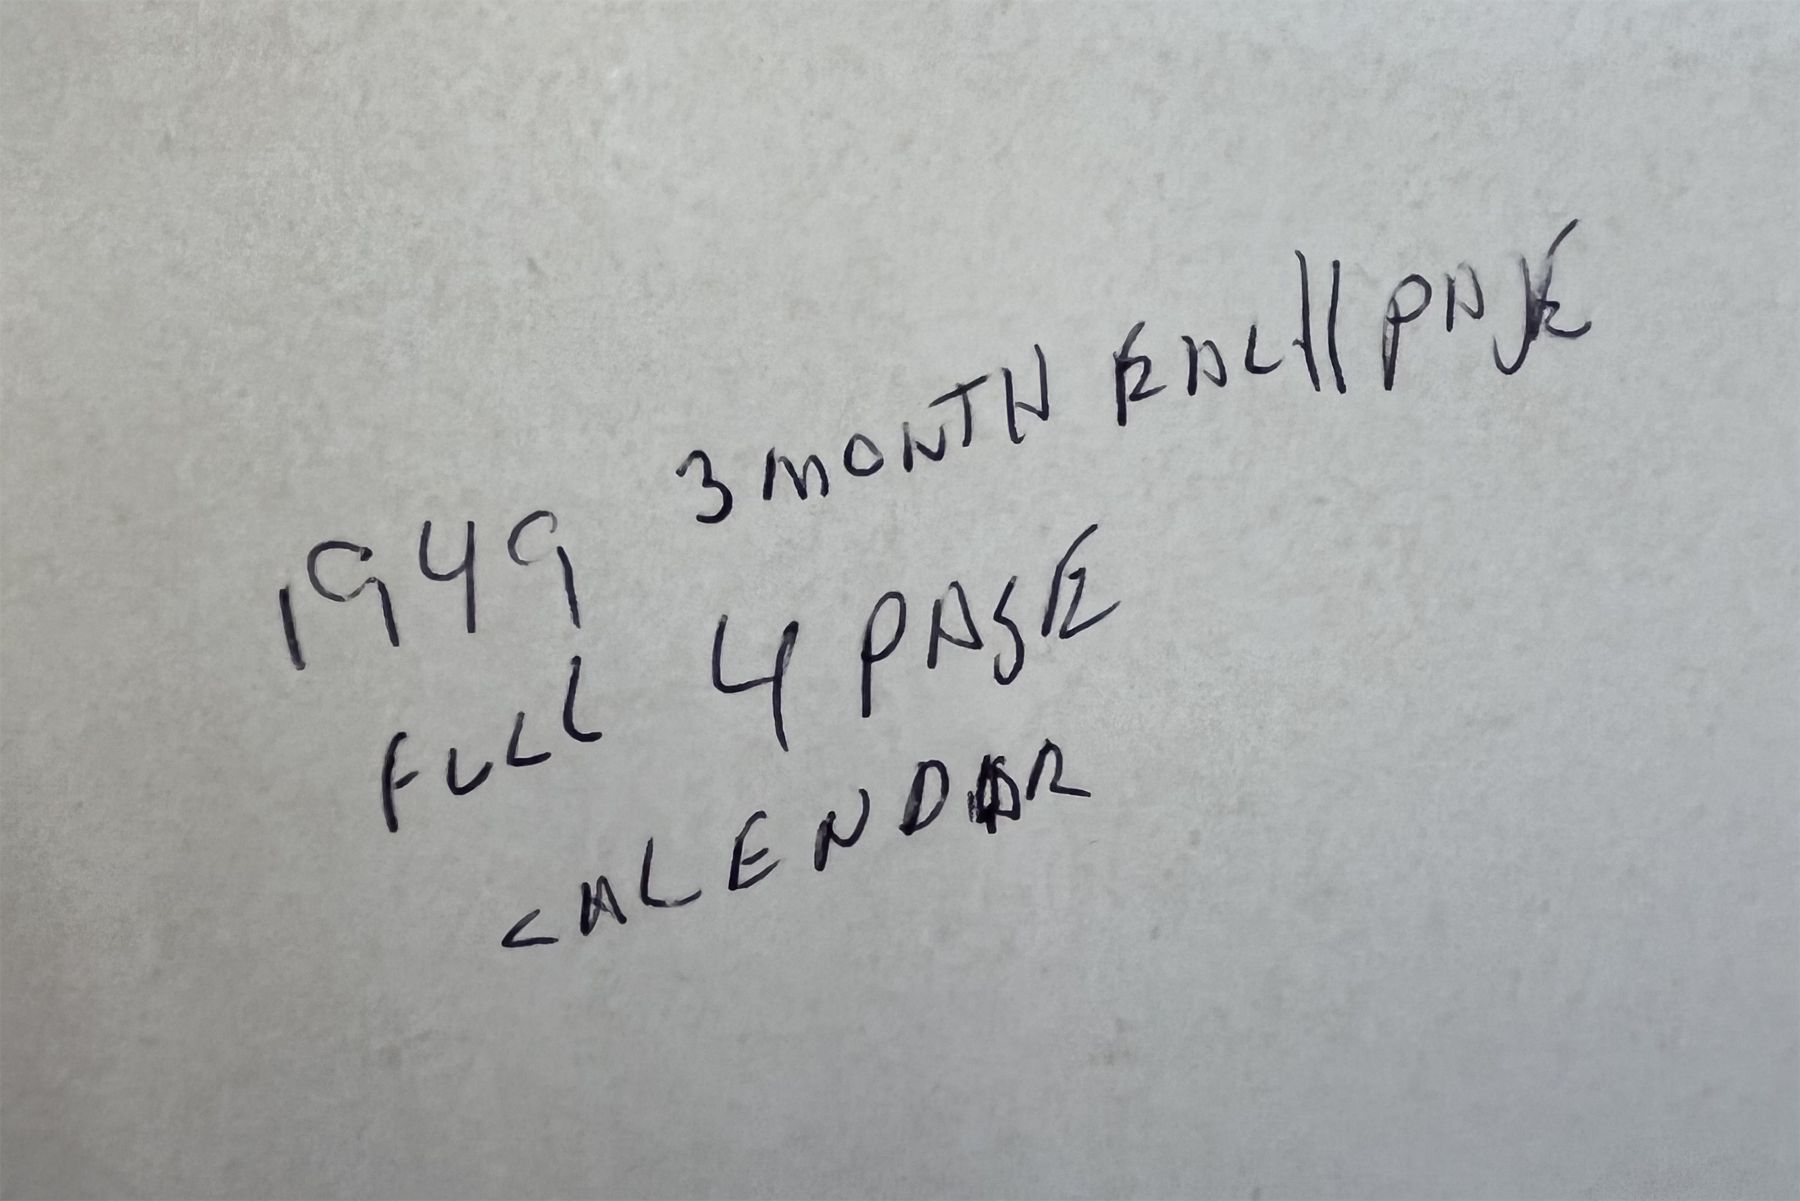 1949 3 MONTH EACH PAGE
FULL 4 PAGE
CALENDAR